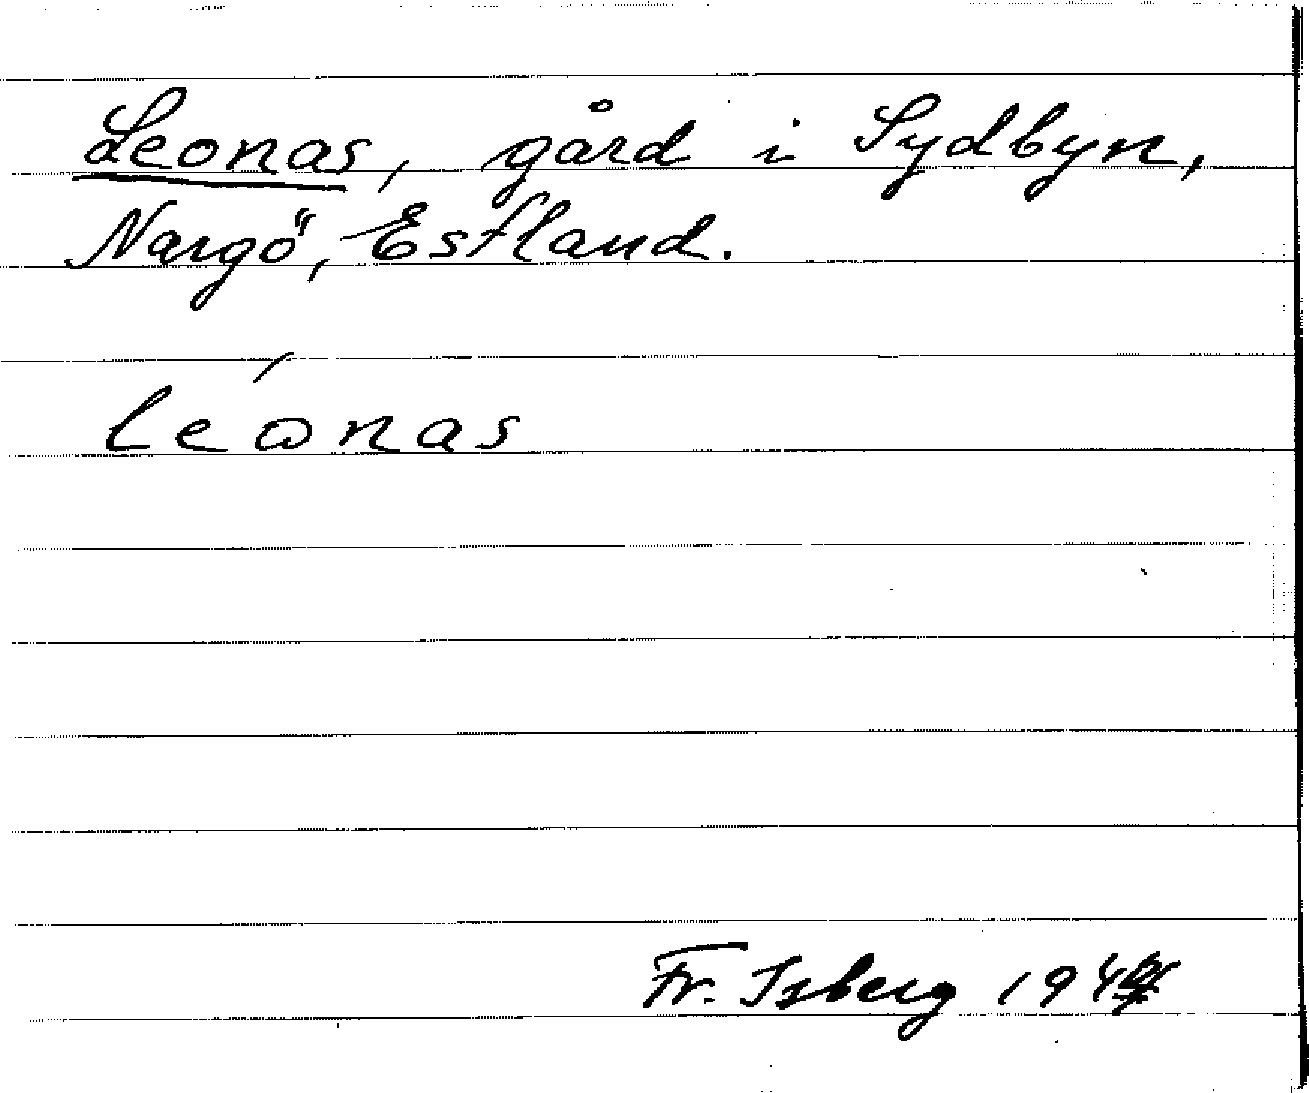 Leonas, gård i Sydbyn,
Nargö, Estland.
leónas
Fr. Isberg